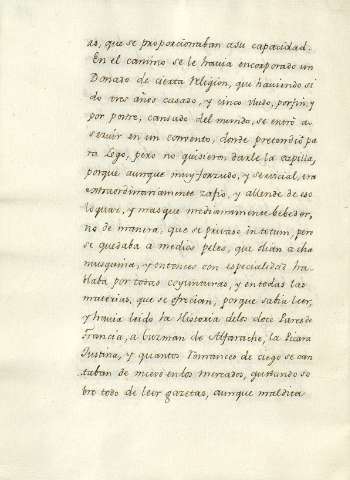 as, que se proporcionaban a su capacidad.
En el camino se le havia encorporado un
Donado de cierta Religion, que haviendo si
do tres años casado, y cinco viudo, por fin y
por postre, cansado del mundo, se entró a
servir en un convento, donde pretendió pa
ra Lego, pero no quisieron darle la capilla,
porque aunque muy forzudo, y servicial, era
extraordinariamente zafio, y allende de eso
loquaz, y mas que medianamente bebedor,
no de manera, que se privase in totum, pero
se quedaba a medios pelos, que olian a cha
musquina, y entonces con especialidad ha
blaba por todas coyunturas, y en todas las
materias, que se ofrecian, porque sabia leer,
y havia leido la Historia delos doce Pares de
Francia, a Guzman de Alfarache, la Picara
Justina, y quantos Romances de ciego se can
taban de nuevo en los mercados, gustando so
bre todo de leer gazetas, aunque maldita